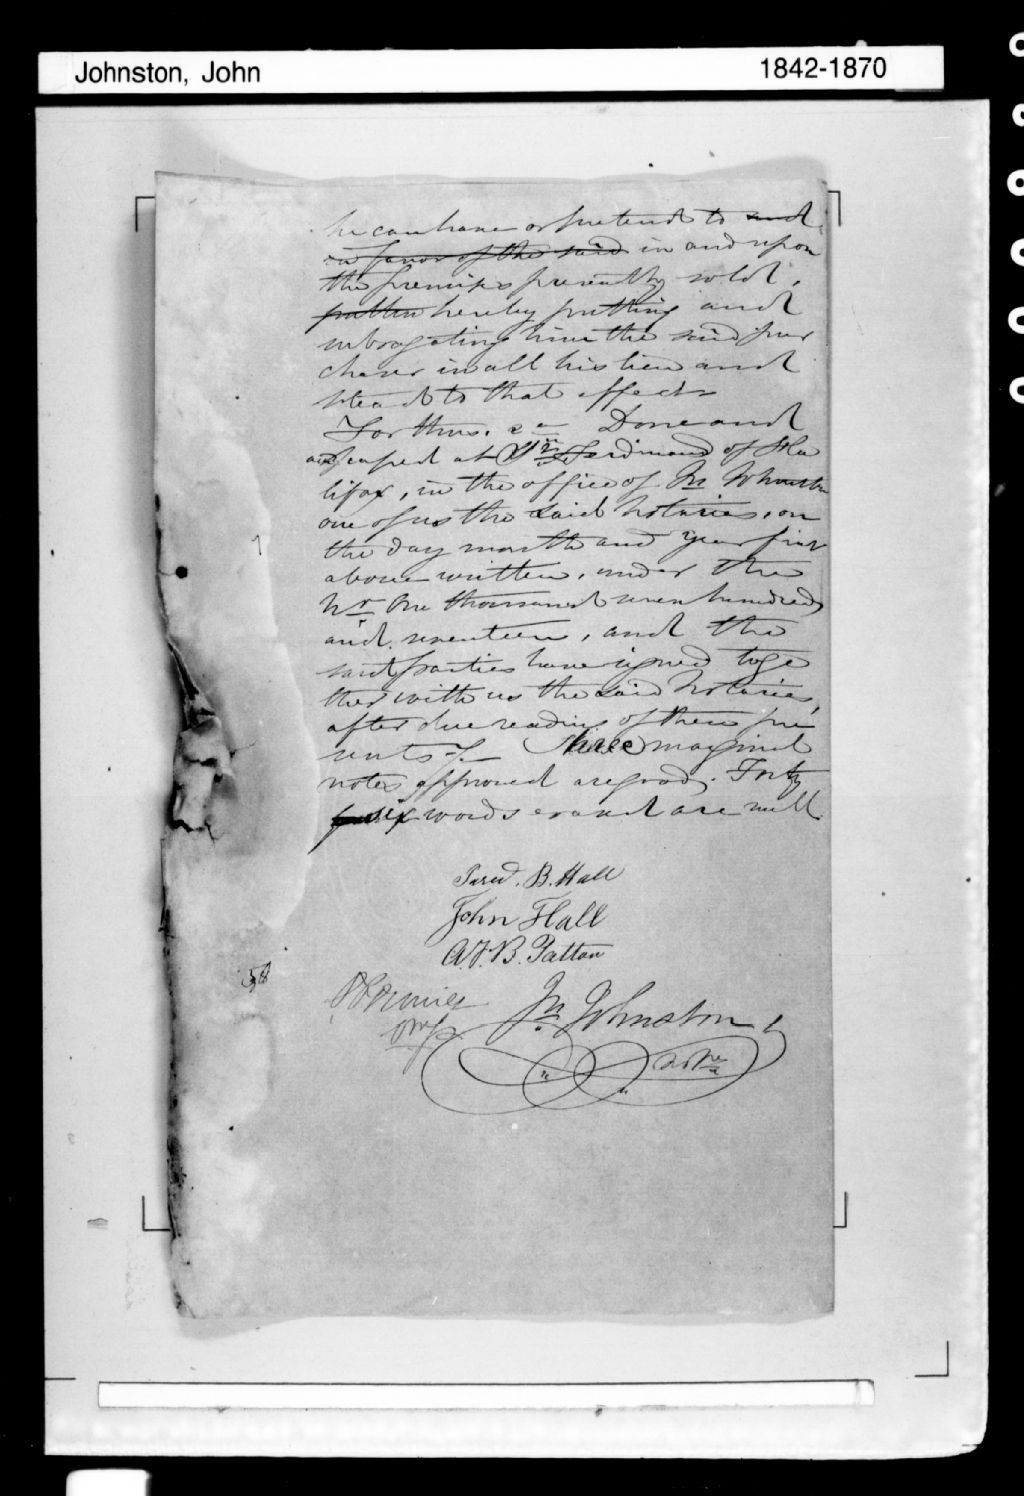 Johnston, John 1842-1870
he can have or pretend to and
in favor of the said in and upon
the premises presently sold,
putten hereby putting and
subrogating him the said pur
chaser in all his lieu and
stead to that effect
For thus. &a Done and
and passed at St Ferdinand of Ha
lifax, in the office of Jn Johnston
one of us the said Notaries, on
the day month and year first
above written, under the
No One thousand seven hundred
and seventeen, and the
said parties have signed toge
ther with us the said Notaries,
after due reading of these pre
sents Three marginal
notes approved are good. Forty
six words erased are null
Jared. B. Hall
John Hall
A.F.B. Patton
Jn Johnston
NPre